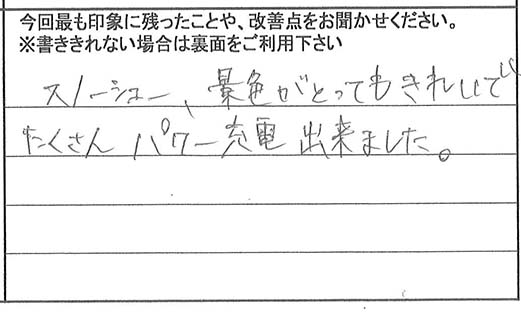 今回最も印象に残ったことや、改善点をお聞かせください。
※書ききれない場合は裏面をご利用下さい
スノーシュー、景色がとってもきれいで
たくさん パワー充電 出来ました。